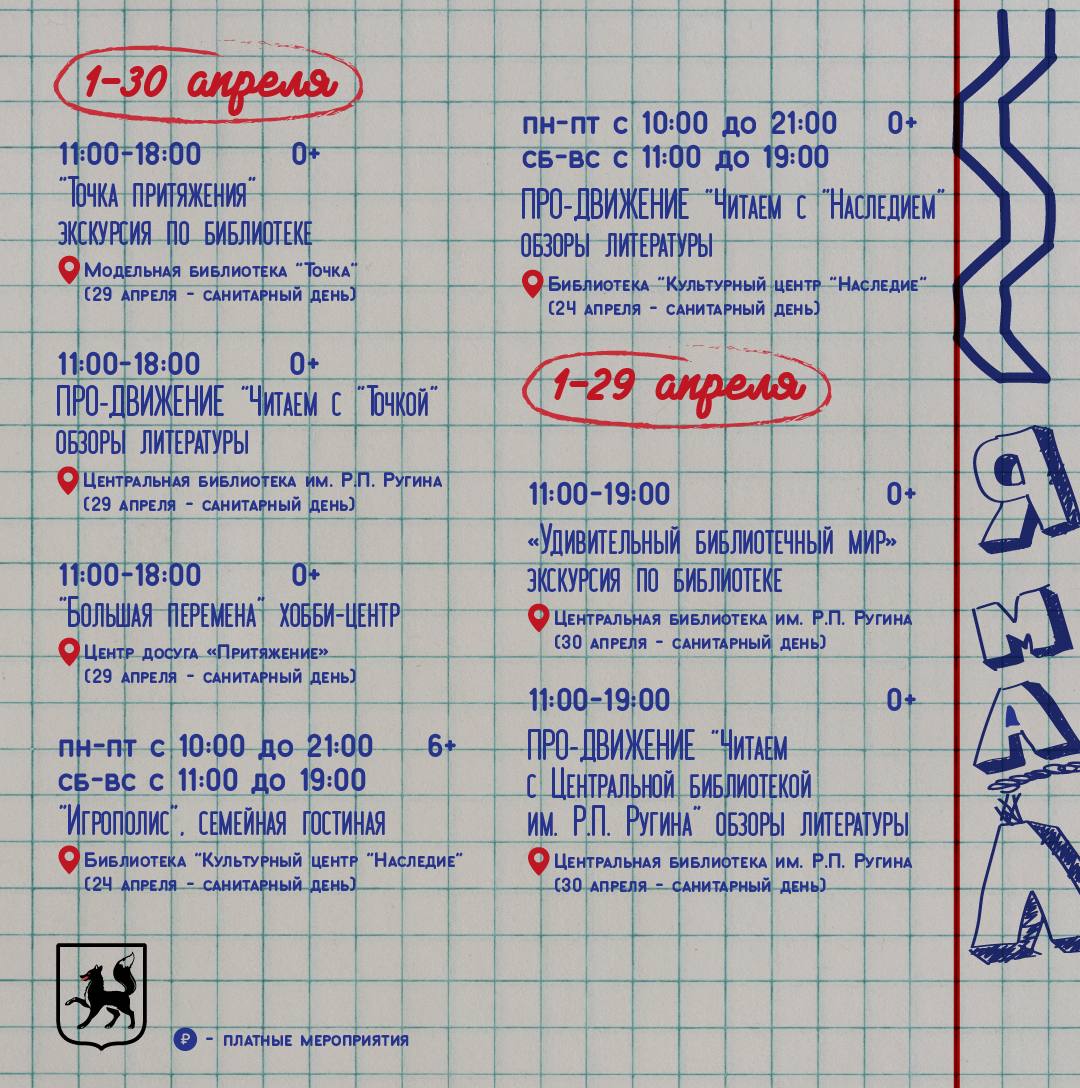 1-30 апреля
11:00-18:00 0+
"Точка притяжения"
экскурсия по библиотеке
Модельная библиотека "Точка"
(29 апреля - санитарный день)
11:00-18:00 0+
ПРО-ДВИЖЕНИЕ "Читаем с "Точкой"
обзоры литературы
Центральная библиотека им. Р.П. Ругина
(29 апреля - санитарный день)
11:00-18:00 0+
"Большая перемена" хобби-центр
Центр досуга «Притяжение»
(29 апреля - санитарный день)
пн-пт с 10:00 до 21:00 6+
сб-вс с 11:00 до 19:00
"Игрополис", семейная гостиная
Библиотека "Культурный центр "Наследие"
(24 апреля - санитарный день)
пн-пт с 10:00 до 21:00 0+
сб-вс с 11:00 до 19:00
ПРО-ДВИЖЕНИЕ "Читаем с "Наследием"
обзоры литературы
Библиотека "Культурный центр "Наследие"
(24 апреля - санитарный день)
1-29 апреля
11:00-19:00 0+
«Удивительный библиотечный мир»
экскурсия по библиотеке
Центральная библиотека им. Р.П. Ругина
(30 апреля - санитарный день)
11:00-19:00 0+
ПРО-ДВИЖЕНИЕ "Читаем
с Центральной библиотекой
им. Р.П. Ругина" обзоры литературы
Центральная библиотека им. Р.П. Ругина
(30 апреля - санитарный день)
₽ - платные мероприятия